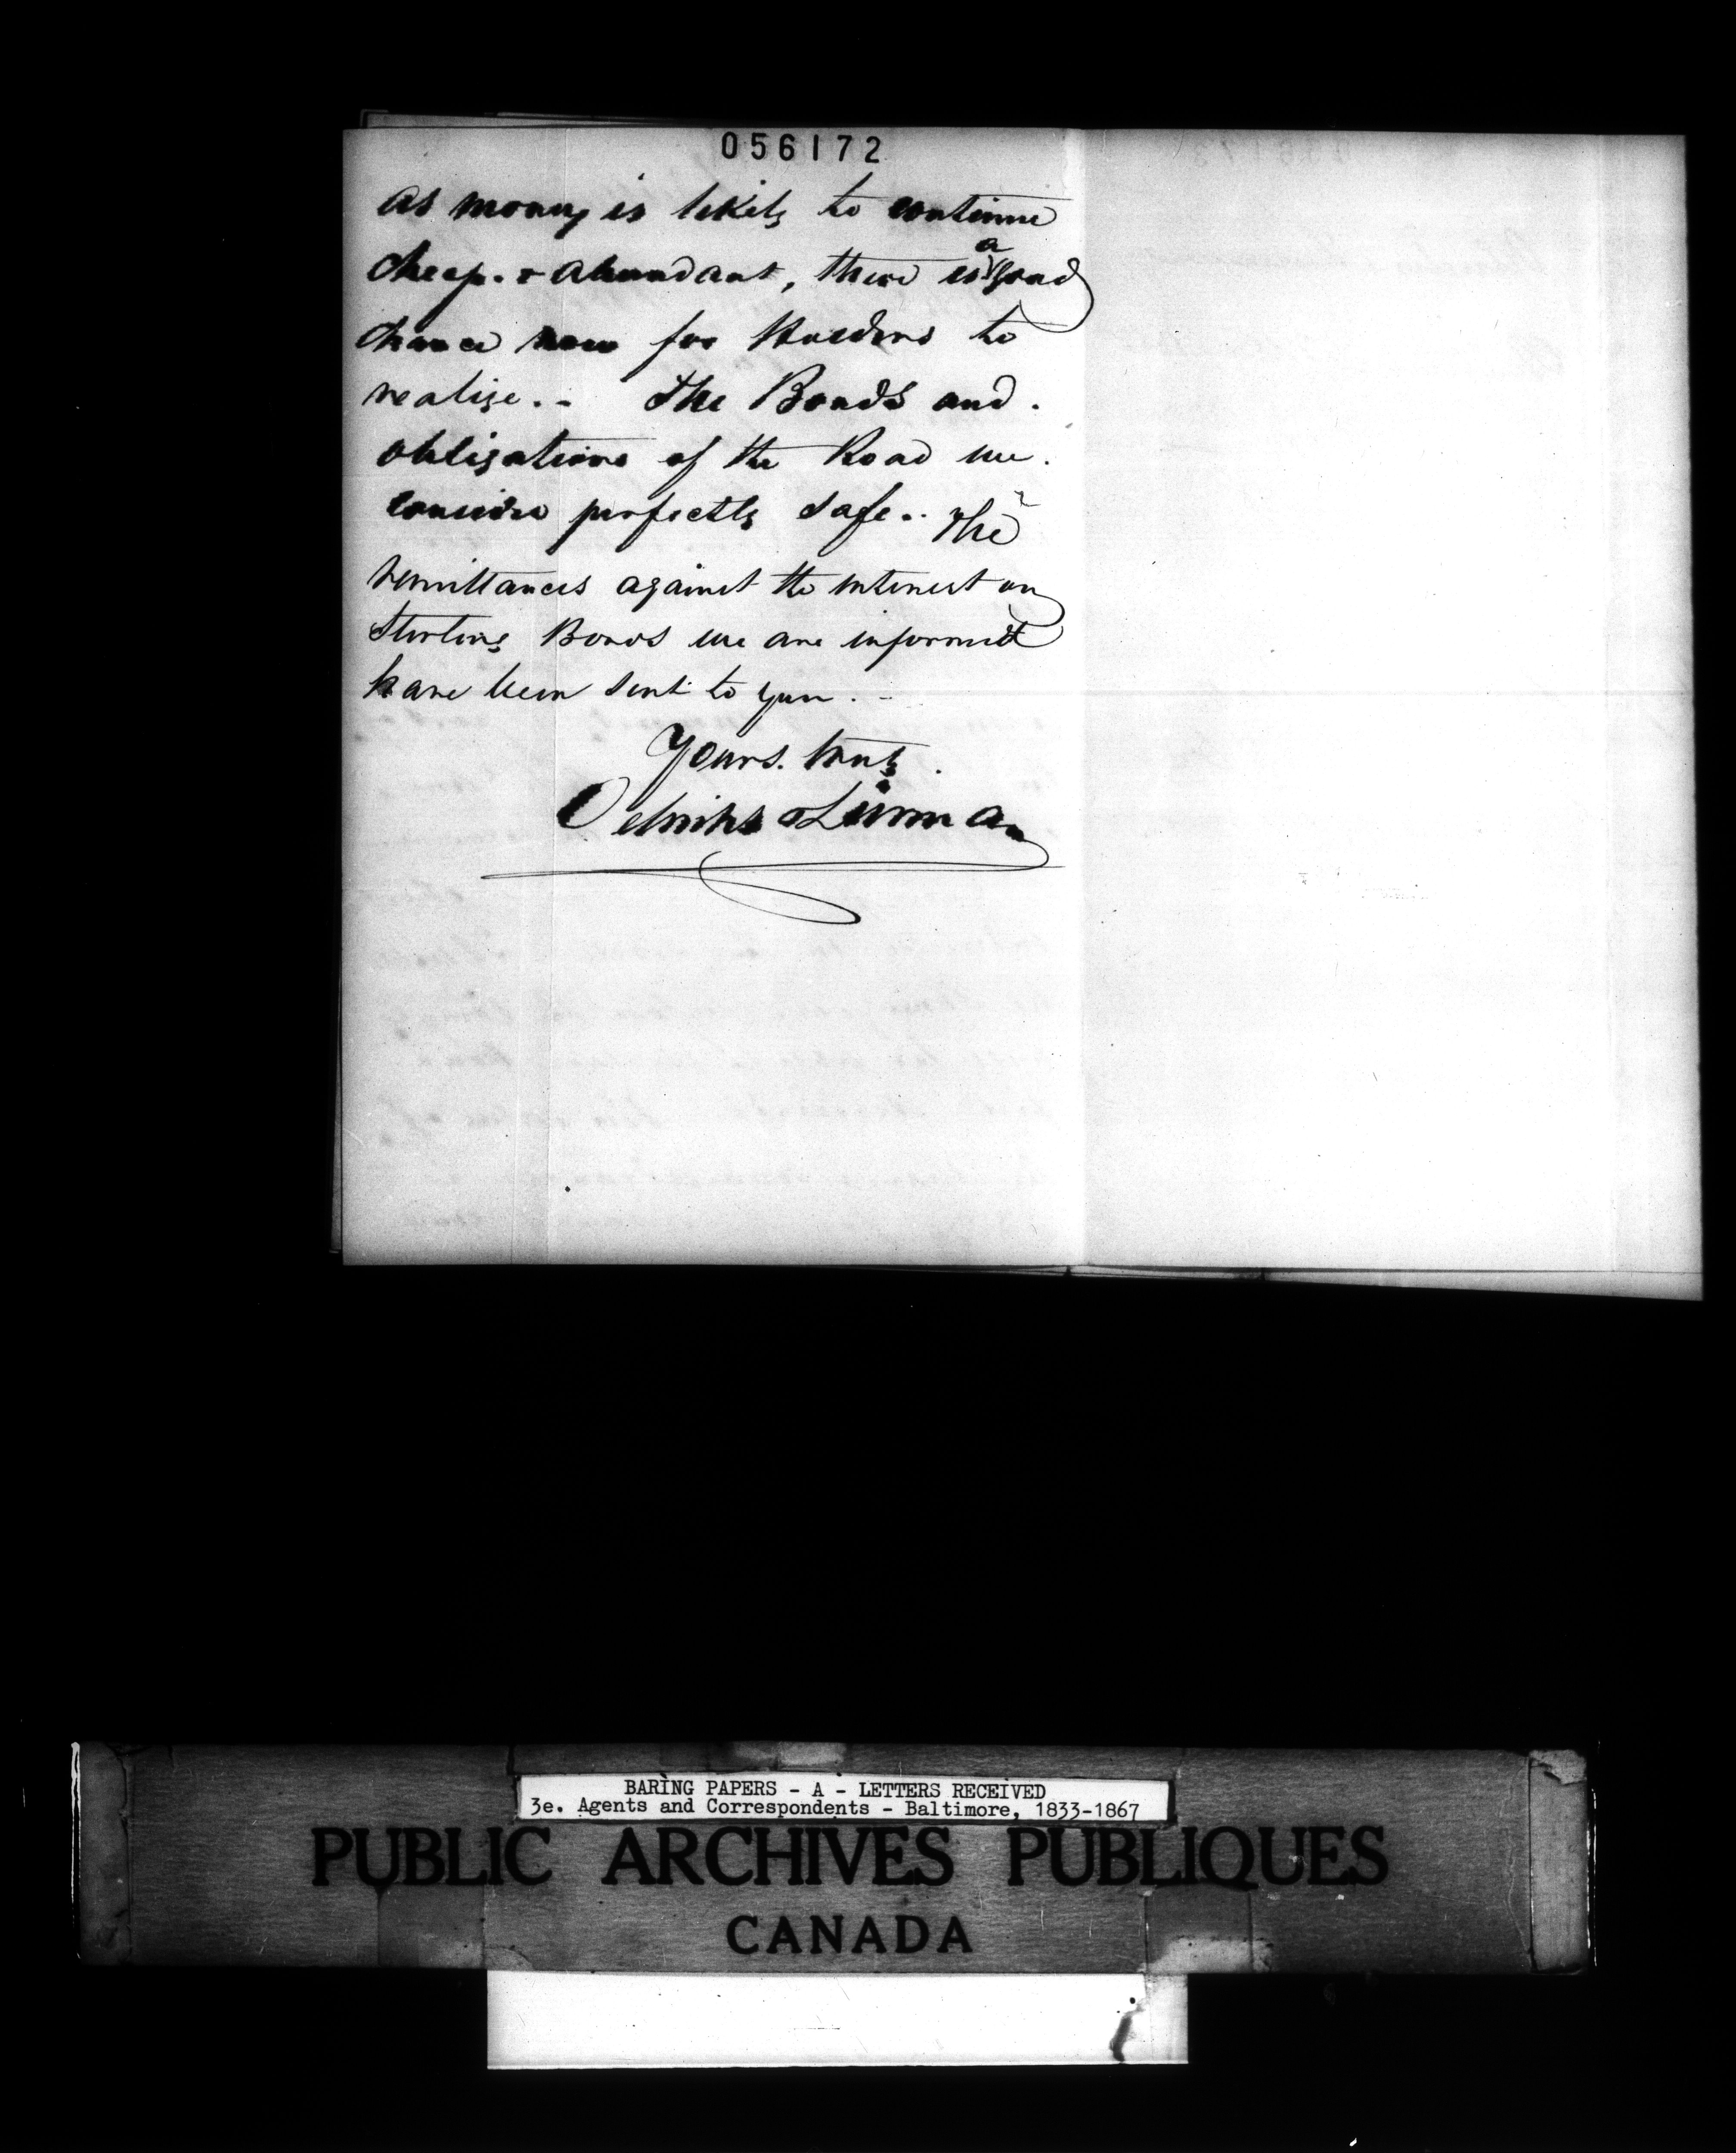 056172
as money is likely to continue
cheap. & abundant, there is a good
chance now for Holders to
realize. - The Bonds and.
obligations of the Road we.
consider perfectly safe. - The
remittances against the interest on
Sterling Bonds we are informed
have been sent to you. -
Yours. truly.
Oelrichs & Lurman
BARING PAPERS - A - LETTERS RECEIVED
3e. Agents and Correspondents - Baltimore, 1833-1867
PUBLIC ARCHIVES PUBLIQUES
CANADA